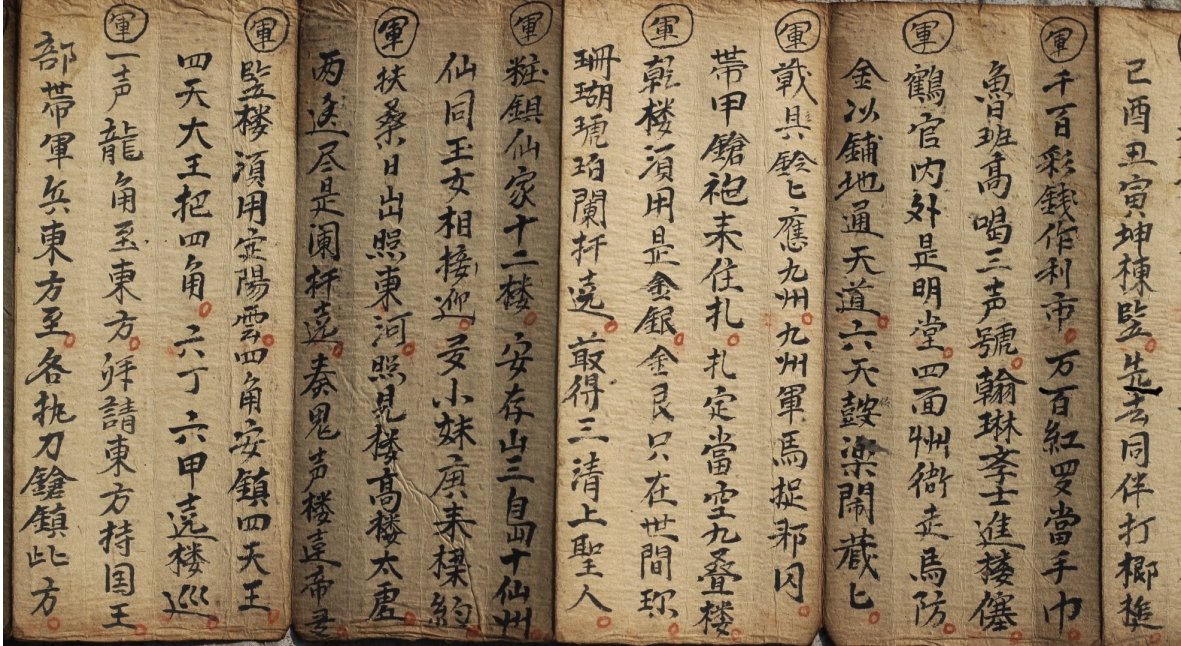 己酉丑寅坤棟監先去同伴打榔槌
軍
千百彩銭作利市万百紅罗當手巾
魯班高喝三声號翰琳斈士進楼僊
軍
鶴官内外是明堂四面州衙走馬防
金以鋪地通天道六天鼓楽鬧蔵匕
軍
戦具鈴匕應九州九州軍馬捉邪囚
帯甲鎗袍来住札札定當空九叠楼
軍
乾楼湏用是金銀金艮只在世間珎
珊瑚琥珀闌杆遶㝡得三清上聖人
軍
粧鎮仙家十二楼安存山三島十仙州
仙同玉女相接迎妾小妹庚来樑約
軍
扶桑日出照東河照見楼髙楼太虚
两送尽是瀾杆遶奏鬼声楼達帝
軍
監楼湏用定陽雲四角安鎮四天王
四天大王把四角六丁六甲遶楼巡
軍
一声龍角至東方拜請東方持国王
部帯軍兵東方至各执刀鎗鎮此方